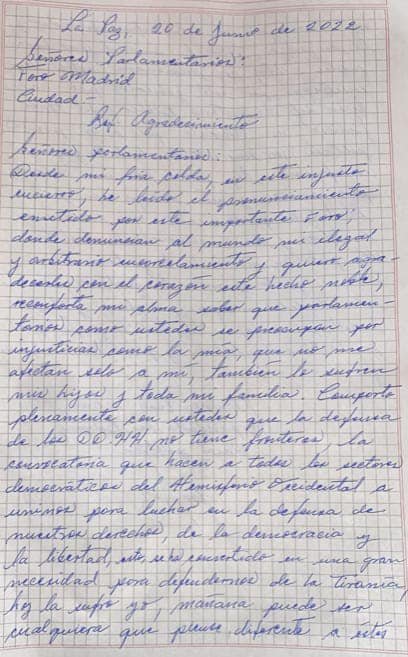 La Paz, 20 de Junio de 2022
Señores Parlamentarios:
Foro Madrid
Ciudad.-
Ref. Agradecimiento
Señores parlamentarios:
Desde mi fria celda, en este injusto
encierro, he leido el pronunciamiento
emitido por este importante Foro;
donde denuncian al mundo mi ilegal
y arbitrario encarcelamiento y quiero agra-
decerles con el corazón este hecho noble,
reconforta mi alma saber que parlamen-
tarios como ustedes se preocupan por
injusticias como la mía, que no me
afectan solo a mí, tambien lo sufren
mis hijos y toda mi familia. Comparto
plenamente con ustedes que la defensa
de los DD.HH. no tiene fronteras, la
convocatoria que hacen a todos los sectores
democráticos del Hemisferio Occidental a
unirnos para luchar en la defensa de
nuestros derechos, de la democracia y
la libertad, esto, se ha convertido en una gran
necesidad para defendernos de la tiranía,
hoy la sufro yo, mañana puede ser
cualquiera que piense diferente a estos